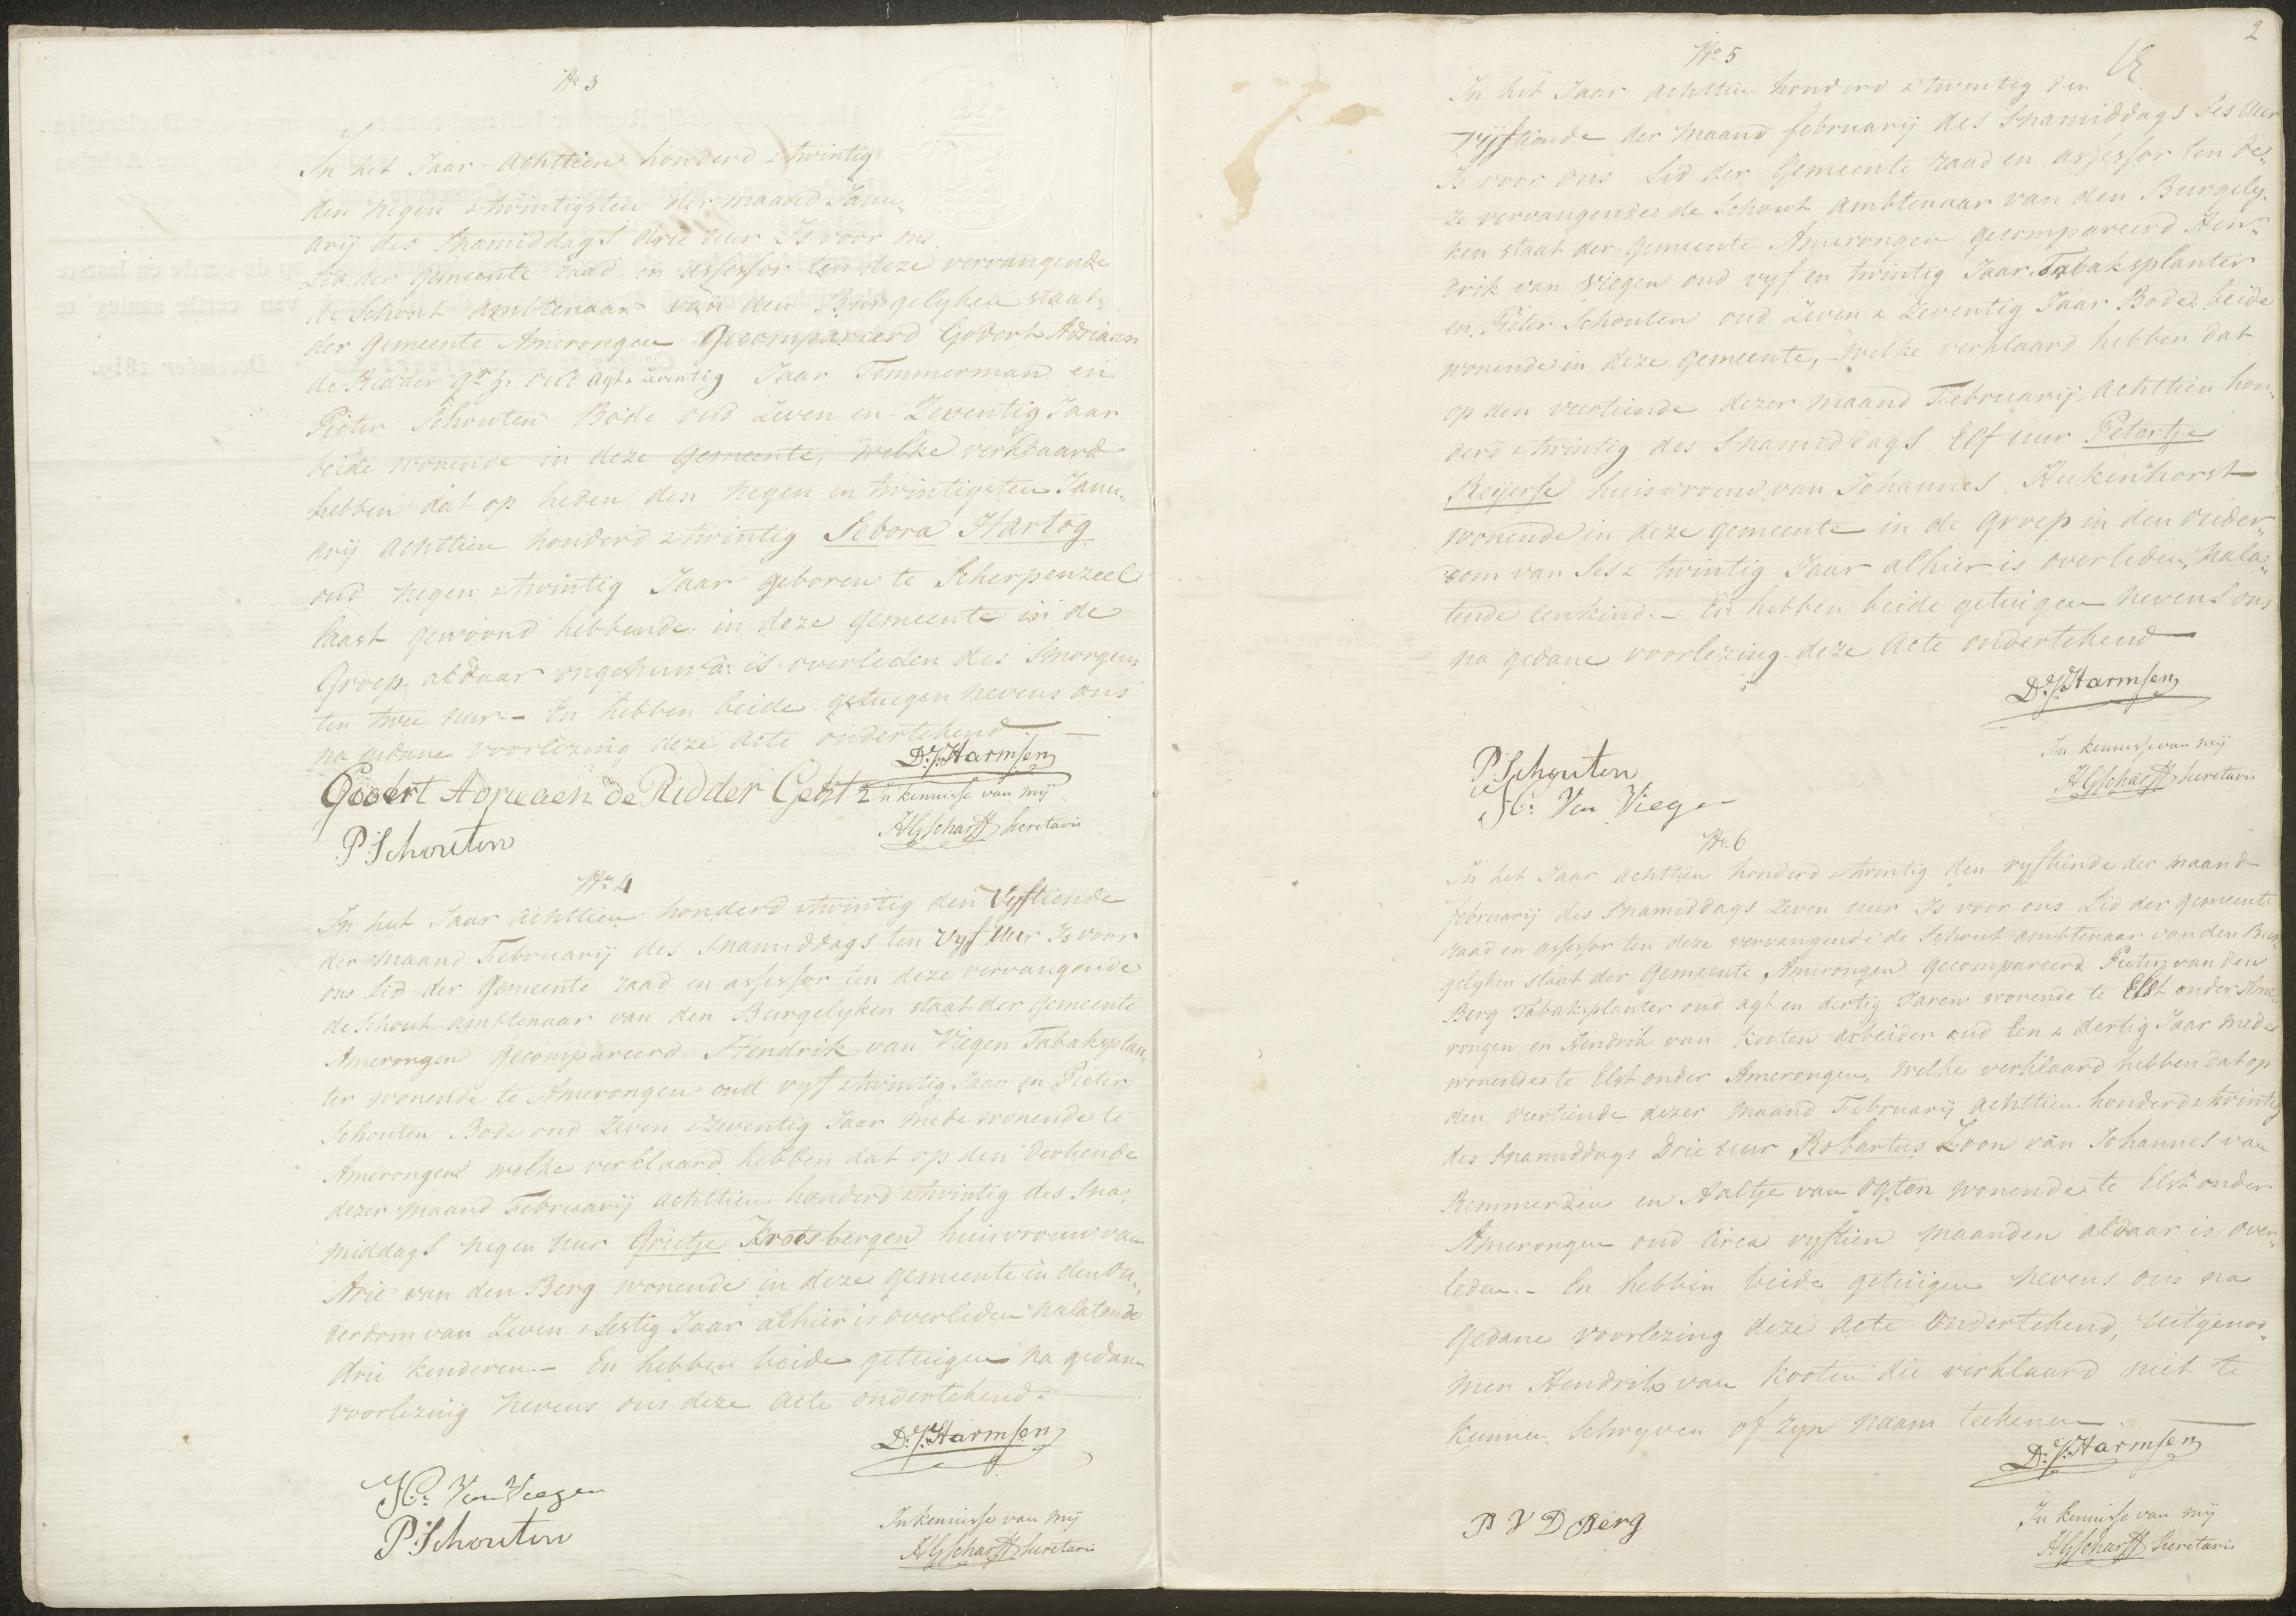 No 3
In het Jaar achttien honderd & twintig
den negen & twintigsten der maand Janu„
arij des snamiddags drie uur Is voor ons
Lid der Gemeente raad en assessor ten deze vervangende
de Schout ambtenaar van den Burgelyken staat
der Gemeente Amerongen Gecompareerd Godert Adriaan
de Ridder oud agt & twintig Jaar Timmerman en
Pieter Schouten Bode oud Zeven en Zeventig Jaar
beide wonende in deze Gemeente, welke verklaard
hebben dat op heden den negen en twintigsten Janu„
arij achttien honderd & twintig Debora Hartog
oud negen & twintig Jaar geboren te Scherpenzeel
laast gewoond hebbende in deze Gemeente in de
Groep aldaar ongehuwd is overleden des smorgens
ten twee uur - En hebben beide getuigen nevens ons
na gedane voorlezing deze acte ondertekend
D: J: Harmsen
Godert Adriaen de Ridder Gebtz
In kennisse van mij
P: Schouten
HGScharff Secretaris
No 4
In het Jaar achttien honderd & twintig den Vyftiende
der maand February des snamiddags ten vyf uur Is voor
ons Lid der Gemeente raad en assessor ten deze vervangende
de Schout ambtenaar van den Burgelyken staat der gemeente
Amerongen Gecompareerd Hendrik van Viegen Tabaksplan„
ter wonende te Amerongen oud vyf & twintig Jaar en Pieter
Schouten Bode oud Zeven & Zeventig Jaar mede wonende te
Amerongen welke verklaard hebben dat op den dertiende
dezer maand Februarij achttien honderd & twintig des sna„
middags negen uur Grietje Kroesbergen huisvrouw van
Arie van den Berg wonende in deze gemeente in den Ou„
derdom van Zeven & Sestig Jaar alhier is overleden nalatende
drie kinderen - En hebben beide getuigen na gedane
voorlezing nevens ons deze acte ondertekend.
D: J: Harmsen
H: Van Viegen
In kennisse van mij
P: Schouten
HGScharff Secretaris
2
No 5
In het Jaar achttien honderd & twintig den
vijftiende der maand februarij des snamiddags Ses uur
Is voor ons Lid der Gemeente raad en assessor ten de„
ze vervangende de Schout ambtenaar van den Burgely„
ken staat der Gemeente Amerongen gecompareerd Hen„
drik van Viegen oud vyf en twintig Jaar Tabaksplanter
en Pieter Schouten oud Zeven & Zeventig Jaar Bode beide
wonende in deze gemeente, - welke verklaard hebben dat
op den veertiende dezer maand Februarij achttien hon„
derd & twintig des snamiddags Elf uur Petertje
Reijerse huisvrouw van Johannes Hukenhorst
wonende in deze gemeente in de Groep in den ouder„
dom van Ses & twintig Jaar alhier is overleden, nala„
tende eenkind. - En hebben beide getuigen nevens ons
na gedane voorlezing deze acte ondertekend
D: J: Harmsen
In kennisse van mij
P: Schouten
HGScharff Secretaris
H: Van Viegen
No 6
In het Jaar achttien honderd & twintig den vyftiende der maand
februarij des snamiddags Zeven uur Is voor ons Lid der gemeente
raad en assessor ten deze vervangende de Schout ambtenaar van den Bur„
gelyken staat der Gemeente Amerongen gecompareerd Pieter van den
Berg Tabaksplanter oud agt en dertig Jaren wonende te Elst onder Ame„
rongen en Hendrik van Kooten arbeider oud Een & dertig Jaar mede
wonende te Elst onder Amerongen, welke verklaard hebben dat op
den veertiende dezer maand Februarij achttien honderd & twintig
des snamiddags Drie uur Robartus Zoon van Johannes van
Remmerden en Aaltje van Ogten wonende te Elst onder
Amerongen oud Circa vyftien maanden aldaar is over„
leden. - En hebben beide getuigen nevens ons na
gedane voorlezing deze acte Ondertekend, uitgenoo„
men Hendrik van Kooten die verklaard niet te
kunnen Schryven of zyn naam teekenen
D: J: Harmsen
P V D Berg
In kennisse van mij
HGScharff Secretaris